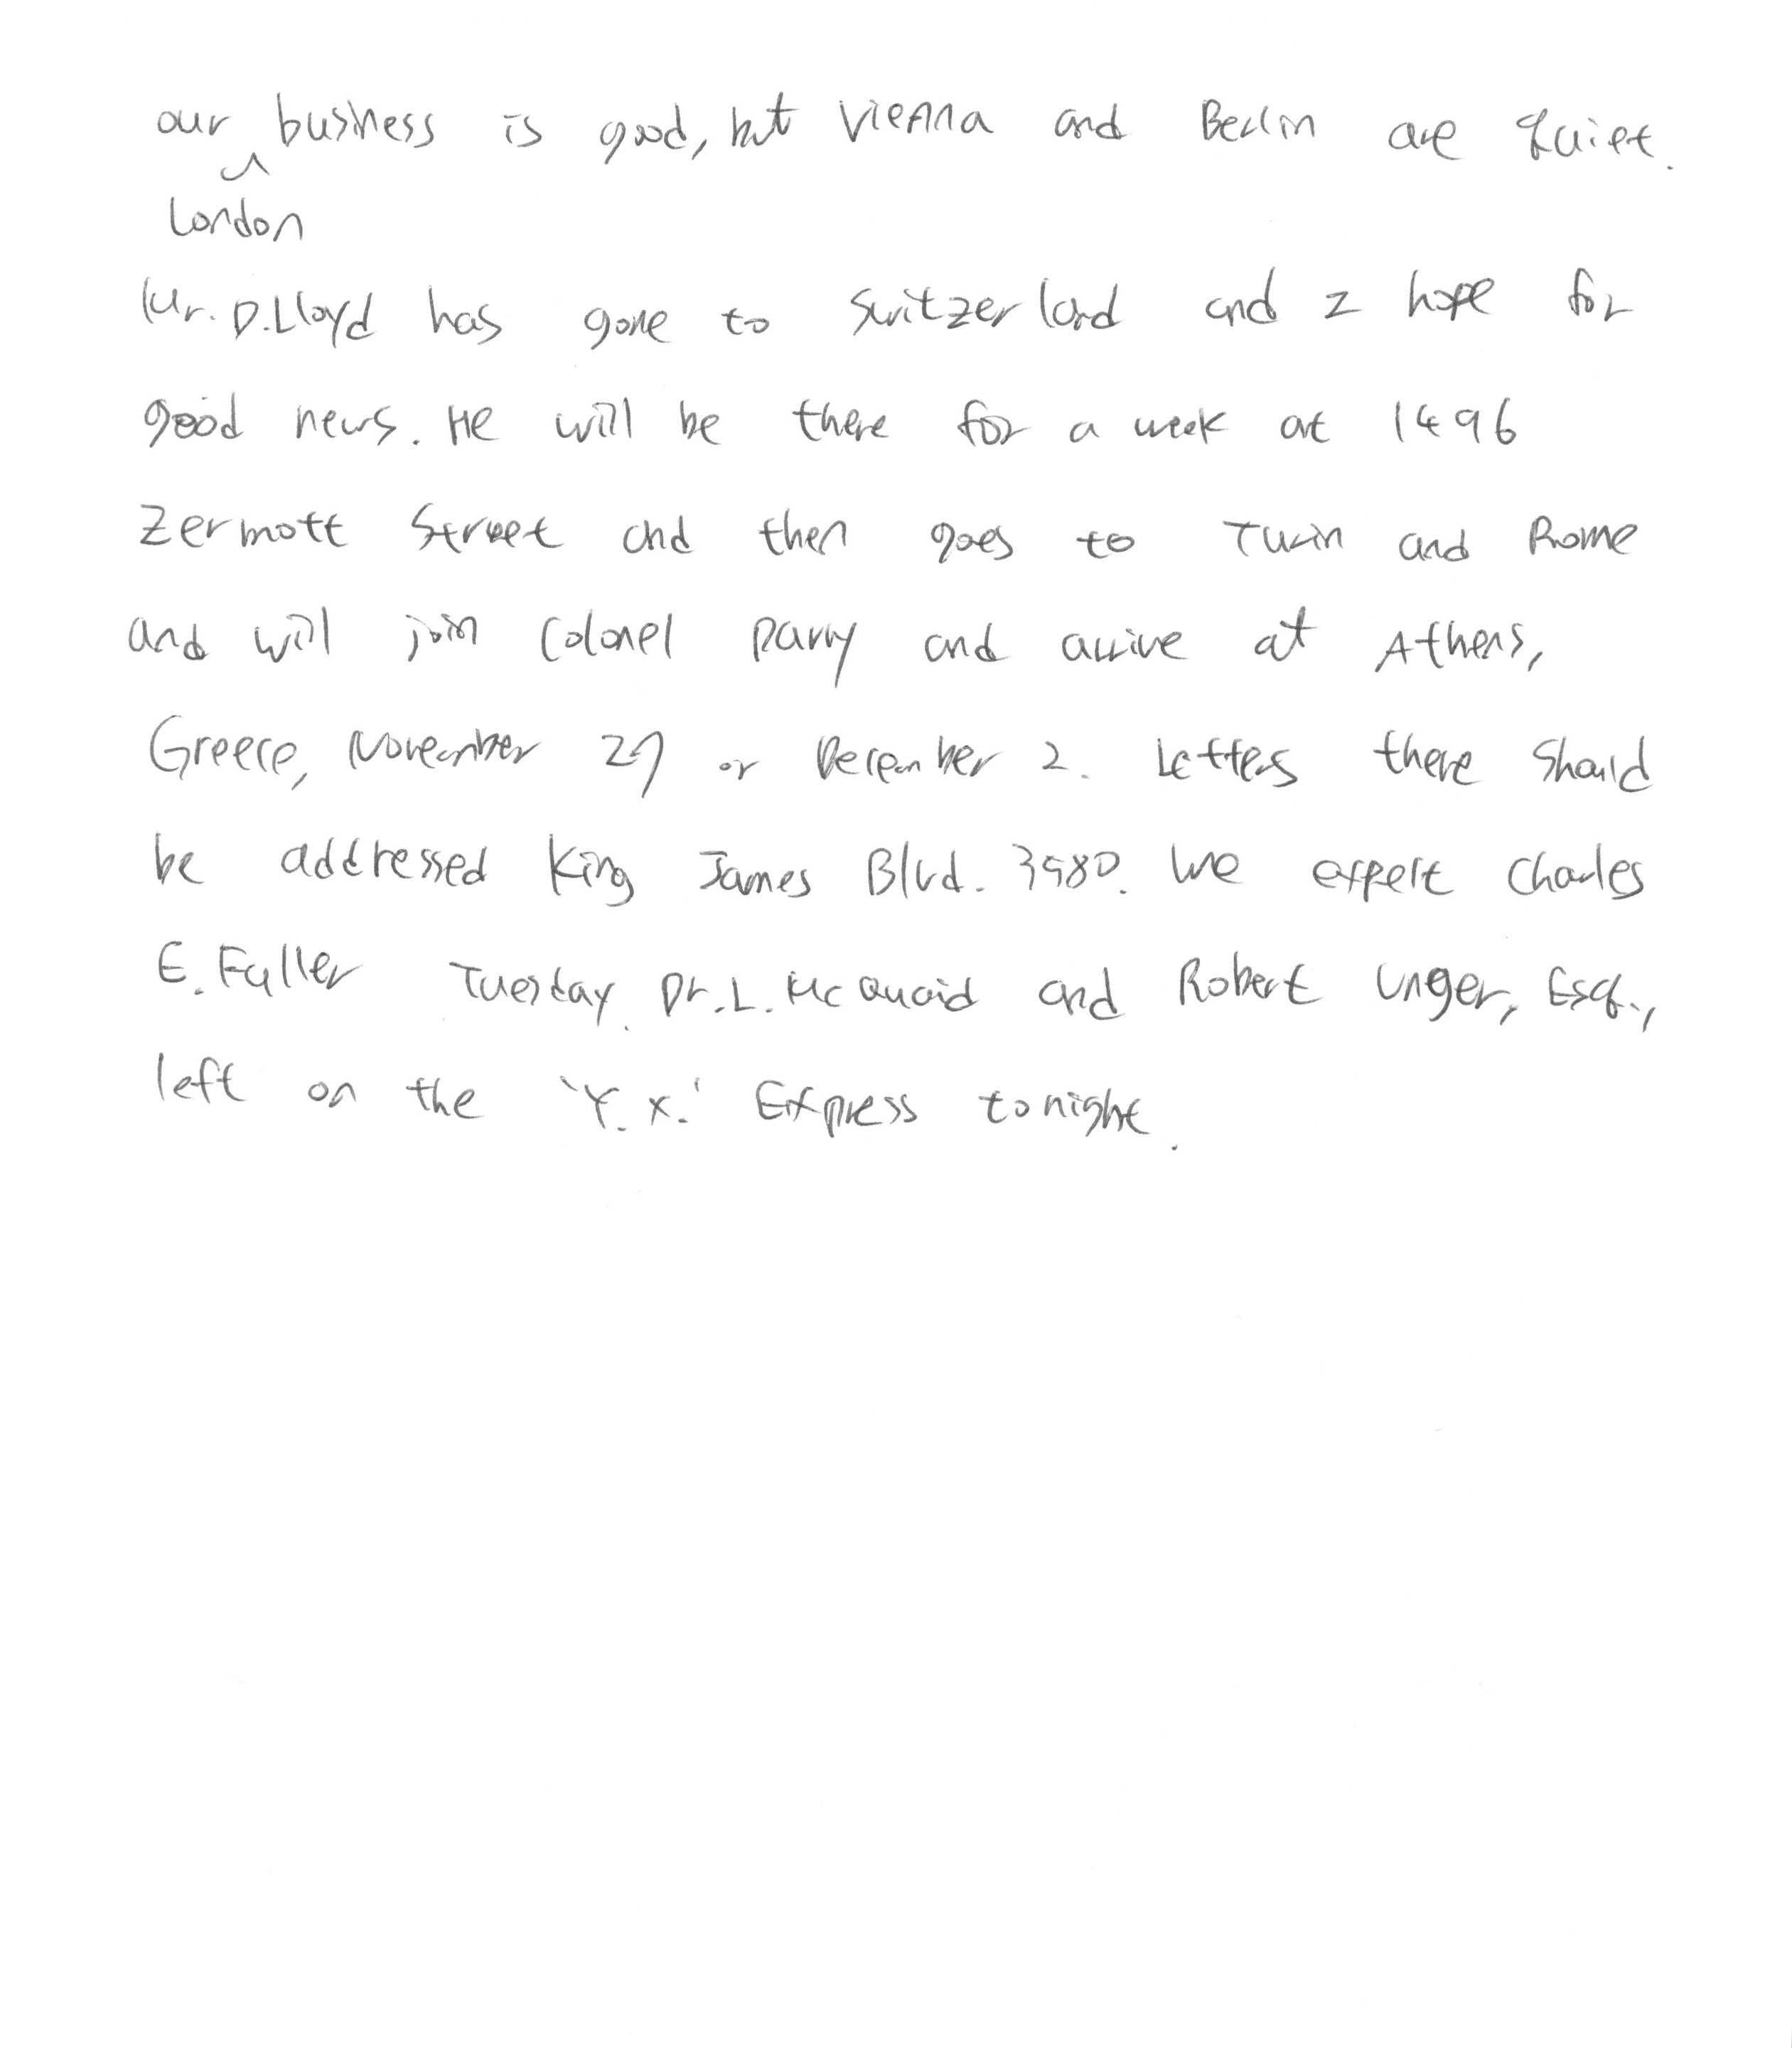 our London business is good, but Vienna and Berlin are quiet.
Mr. D. Lloyd has gone to Switzerland and I hope for
good news. He will be there for a week at 1496
Zermott Street and then goes to Turin and Rome
and will join Colonel Parry and arrive at Athens,
Greece, November 27 or December 2. Letters there should
be addressed King James Blvd. 3580. We expect Charles
E. Fuller Tuesday. Dr. L. McQuaid and Robert Unger, Esq.,
left on the 'Y.X.' Express tonight.